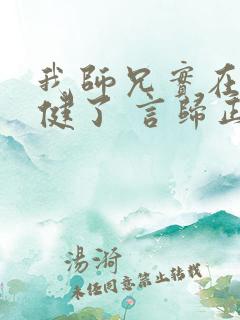 我師兄實在
健了 言歸正
湯漪
未經同意禁止轉載